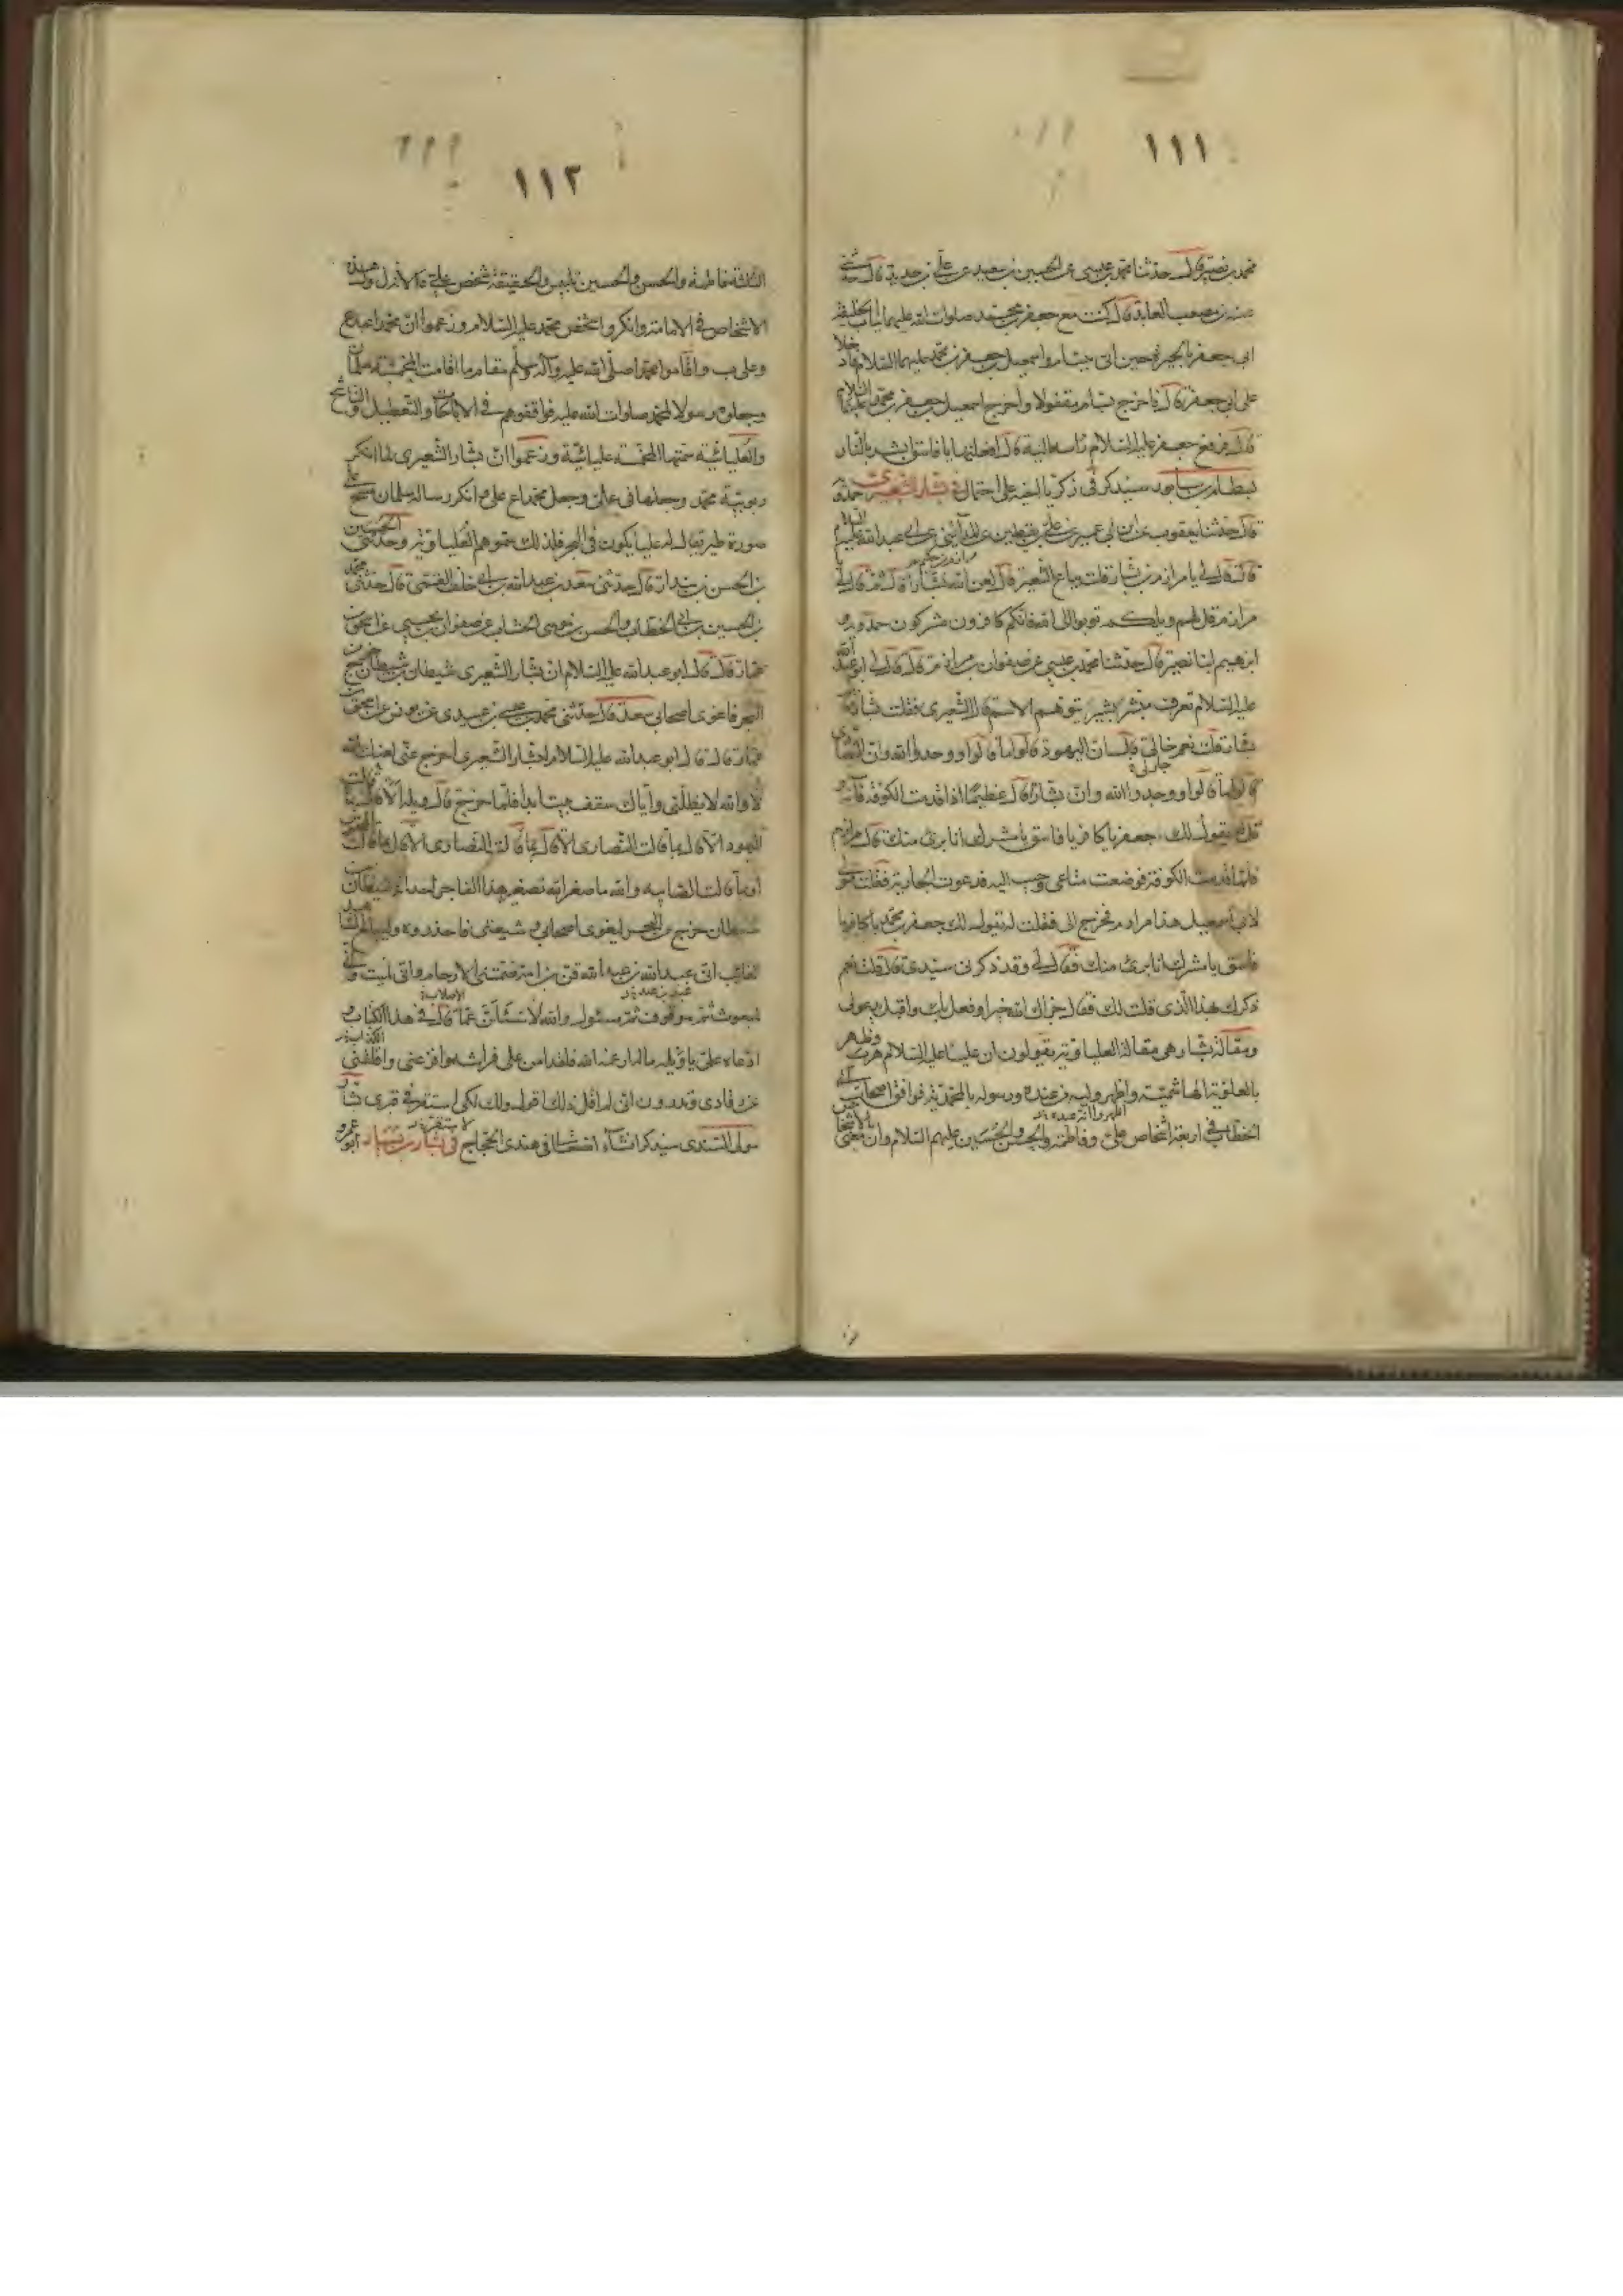 ١١١
محمد بن نصير قال حدثنا محمد بن عيسى عن الحسين بن سعيد عن علي بن حديد قال حدثني
عنبسة بن مصعب العابد قال كنت مع جعفر بن محمد صلوات الله عليهما بباب الخليفة
ابي جعفر بالحيرة حين اتى ببسام واسمعيل بن جعفر بن محمد عليهما السلام فادخلا
على ابي جعفر قال فاخرج بسام مقتولا واخرج اسمعيل بن جعفر بن محمد عليهما السلام
قال فرفع جعفر عليه السلام راسه اليه قال افعلتها يا فاسق ابشر بالنار
بسطام بن سابور سيذكر في زكريا اخيه على احتمال في بشار الشعيرى حمدويه
قال حدثنا يعقوب عن ابن ابي عمير عن علي بن يقطين عن المدائني عن ابي عبد الله عليه السلام
قال قال لي يا مرازم من بشار قلت بياع الشعير قال لعن الله بشارا قال ثم قال لي يا
مرازم قل لهم ويلكم توبوا الى الله فانكم كافرون مشركون حمدويه و
ابرهيم ابنا نصير قال حدثنا محمد بن عيسى عن صفوان عن مرازم قال قال لي ابو عبد الله
عليه السلام تعرف مبشر بشير يتوهم الاسم قال الشعيرى فقلت بشار قال
بشار قلت نعم جار لي قال ان اليهود قالوا ما قالوا ووحدوا الله وان النصارى
قالوا ما قالوا ووحدوا الله وان بشارا قال عظيما اذا قدمت الكوفة فاته و
قل له يقول لك جعفر يا كافر يا فاسق يا مشرك انا برئ منك قال مرازم
فلما قدمت الكوفة فوضعت متاعى وجئت اليه فدعوت الجارية فقلت قولي
لابي اسمعيل هذا مرازم فخرج الي فقلت له يقول لك جعفر بن محمد يا كافر يا
فاسق يا مشرك انا برئ منك فقال لي وقد ذكرنى سيدى قال قلت نعم
ذكرك بهذا الذى قلت لك فقال جزاك الله خيرا وفعل بك واقبل يدعو لي
ومقالة بشار هى مقالة العلياوية يقولون ان عليا عليه السلام هرب وظهر
بالعلوية الهاشمية واظهر وليه من عنده ورسوله بالمحمدية فوافق اصحاب ابي
الخطاب في اربعة اشخاص علي وفاطمة والحسن والحسين عليهم السلام وان معنى الاشخاص
١١٢
الثلثة فاطمة والحسن والحسين تلبيس والحقيقة شخص علي لانه اول هذه
الاشخاص في الامامة وانكروا شخص محمد عليه السلام وزعموا ان محمدا عبد ع
وعلي ب واقاموا محمدا صلى الله عليه وآله وسلم مقام ما اقامت المخمسة سلمان
وجعلوه رسولا لمحمد صلوات الله عليه فوافقوهم في الاباحات والتعطيل والتناسخ
والعليائية سمتها المخمسة عليائية وزعموا ان بشار الشعيرى لما انكر
ربوبية محمد وجعلها في علي وجعل محمدا ع علي وانكر رسالة سلمان مسخ على
صورة طير يقال له عليا يكون في البحر فلذلك سموهم العلياوية وحدثنى الحسين
بن الحسن بن بندار قال حدثنى سعد بن عبد الله بن ابي خلف القمى قال حدثنى محمد
بن الحسين بن ابي الخطاب والحسن بن موسى الخشاب عن صفوان بن يحيى عن اسحق بن
عمار قال قال ابو عبد الله عليه السلام ان بشار الشعيرى شيطان بن شيطان خرج من
البحر فاغوى اصحابي سعد قال حدثنى محمد بن عيسى بن عبيد عن يونس عن اسحق بن
عمار قال قال ابو عبد الله عليه السلام لبشار الشعيرى اخرج عنى لعنك الله
لا والله لا يظلنى واياك سقف بيت ابدا فلما خرج قال ويله الا قال بما قالت
اليهود الا قال بما قالت النصارى الا قال بما قالت المجوس
او بما قالت الصابية والله ما صغر الله تصغير هذا الفاجر احد انه شيطان بن
شيطان خرج من البحر ليغوى اصحابي وشيعتى فاحذروه وليبلغ الشاهد
الغائب انى عبد الله بن عبد الله قن بن امة ضمتنى الارحام وانى لميت وانى
عبد بن عبد
الاصلاب
لمبعوث ثم موقوف ثم مسئول والله لاسئلن عما قال في هذا الكذاب و
ادعاه علي يا ويله ما له ارعبه الله فلقد امن على فراشه وافزعنى واقلقنى
عن رقادى وتدرون انى لم اقل ذلك اقول ذلك لكي استقر في قبرى بشار
مولى السندى سيذكر انشاء الله تعالى في هندى الحجاج في بشار بن بشار ابو عمرو